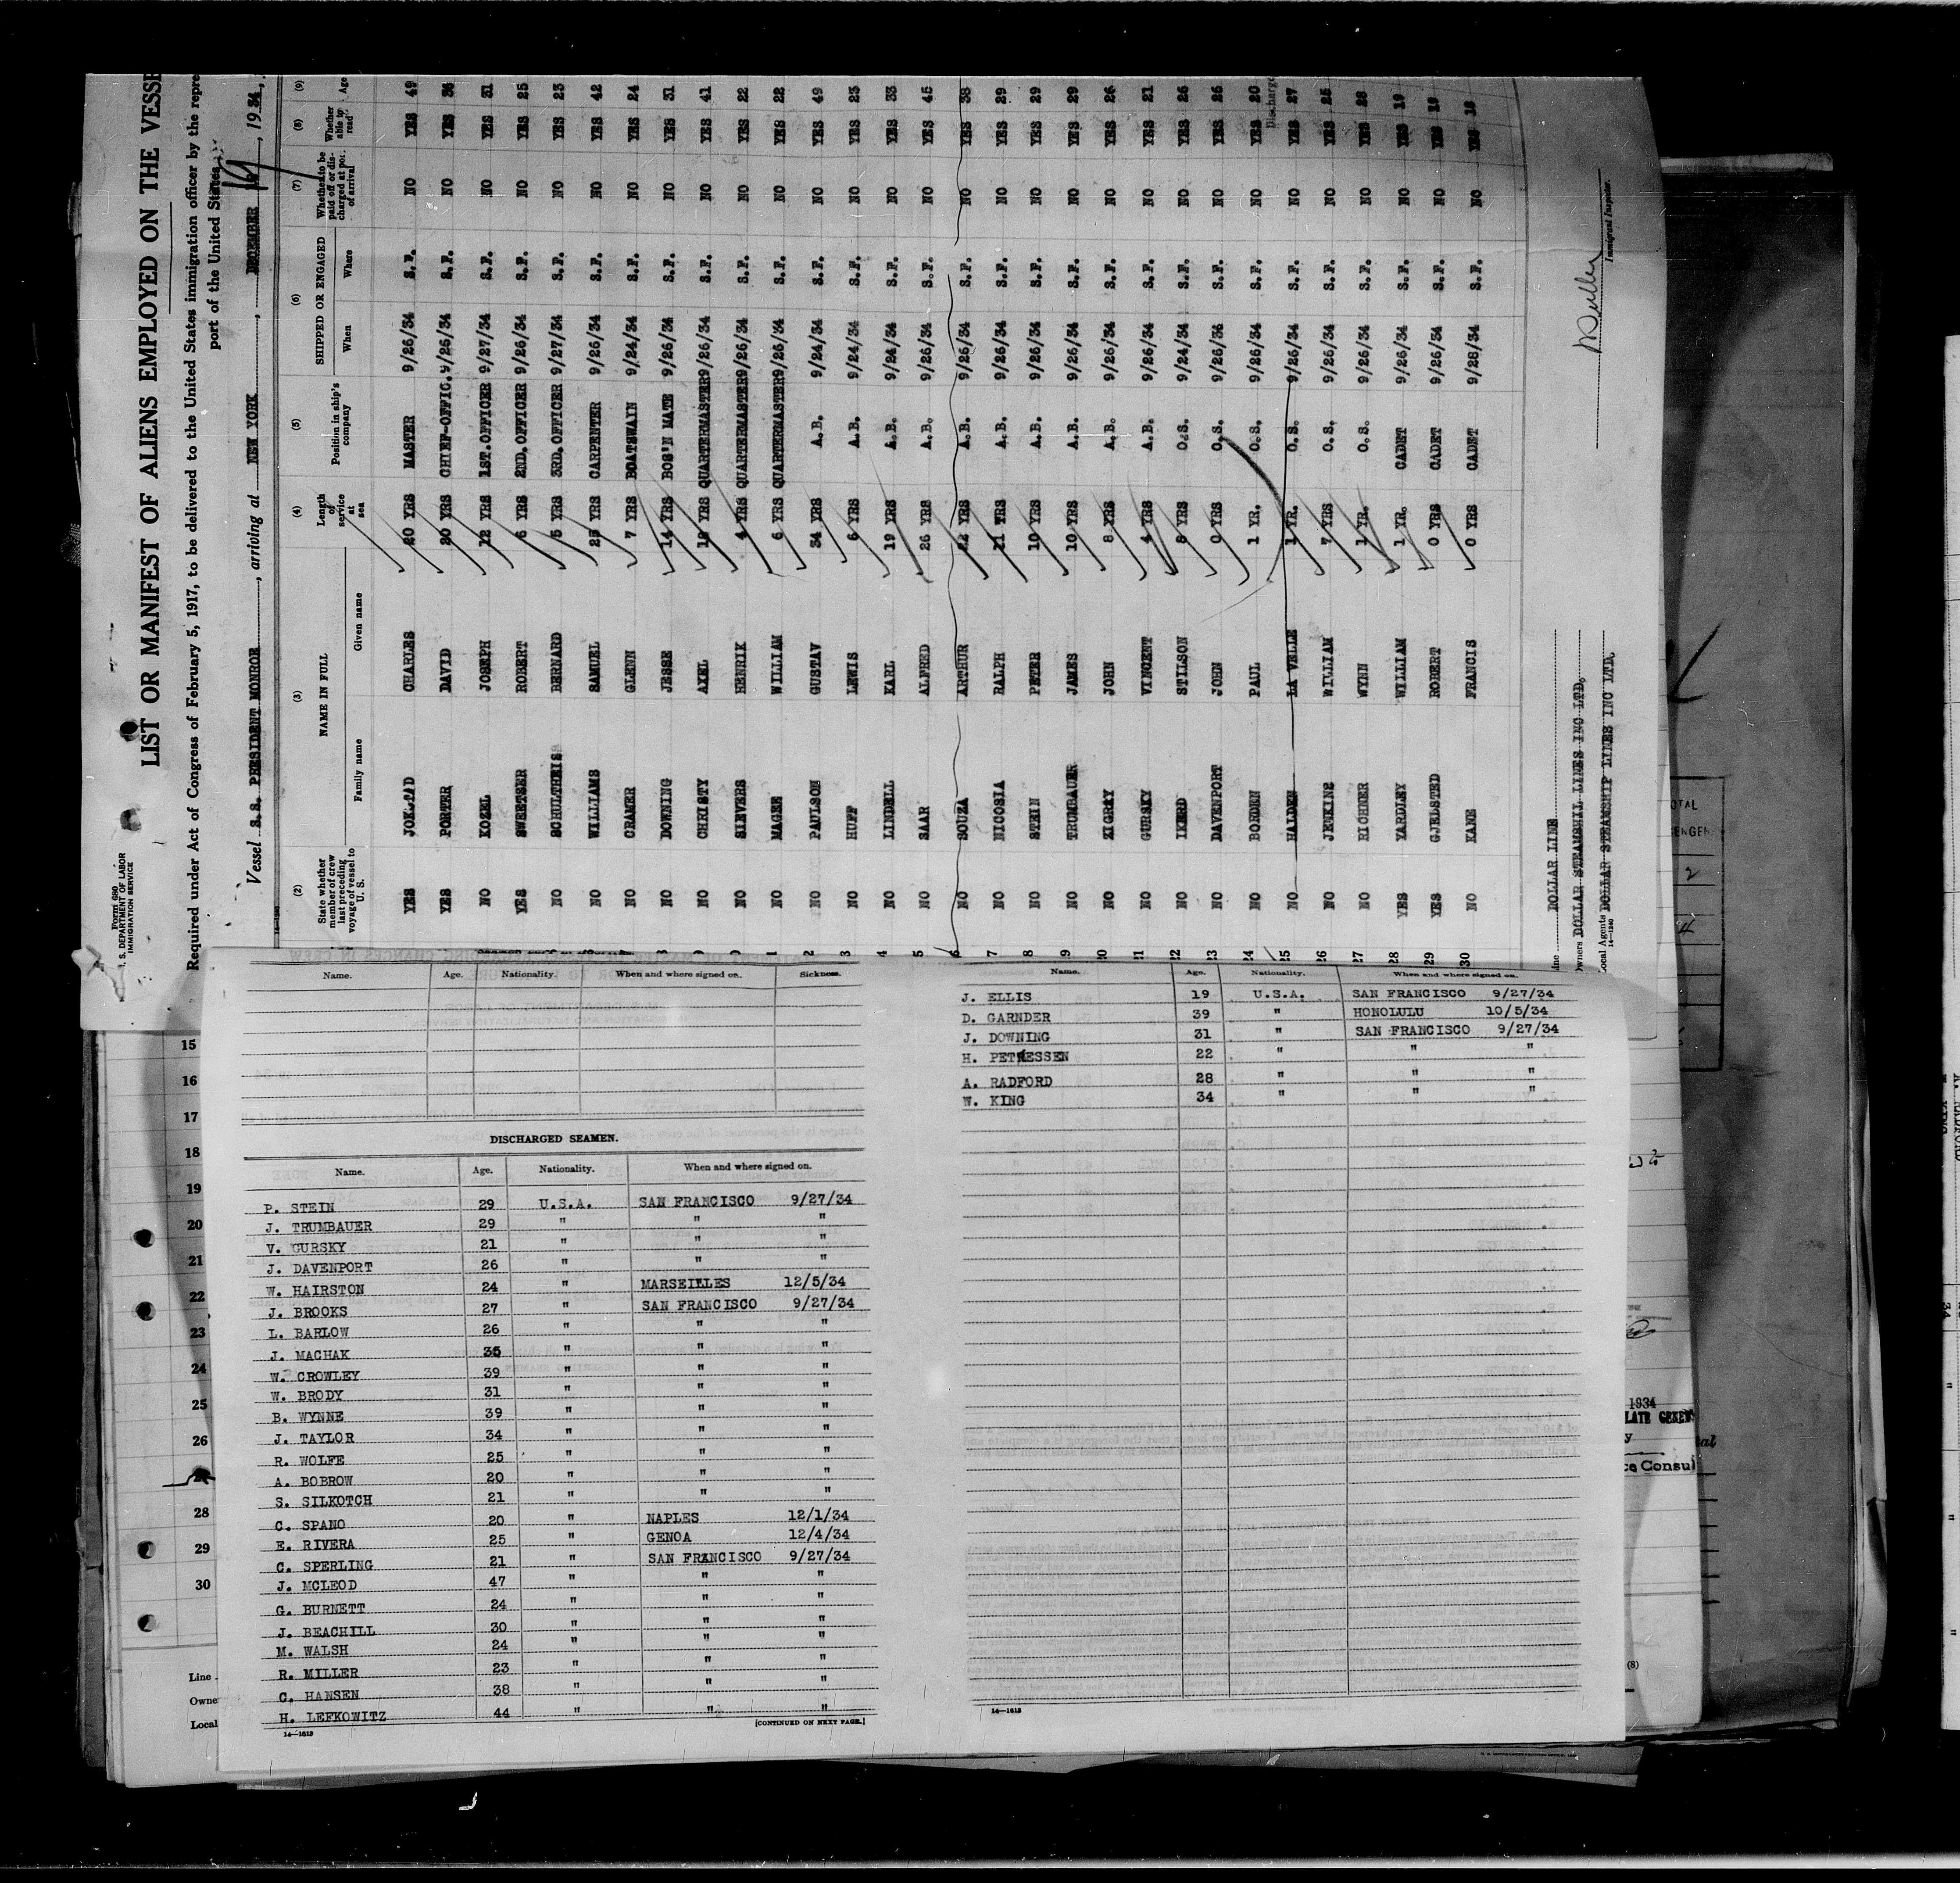 Form 680
U. S. DEPARTMENT OF LABOR
IMMIGRATION SERVICE
LIST OR MANIFEST OF ALIENS EMPLOYED ON THE VESSE
Required under Act of Congress of February 5, 1917, to be delivered to the United States immigration officer by the repre
port of the United States
Vessel S.S. PRESIDENT MONROE, arriving at NEW YORK, DECEMBER 19, 1934,
(2) (3) (4) (5) (6) (7) (8) (9)
State whether member of crew last preceding voyage of vessel to U. S. NAME IN FULL Family name Given name Length of service at sea Position in ship's company SHIPPED OR ENGAGED When Where Whether to be paid off or discharged at port of arrival Whether able to read Age
YES CHARLES 20 YRS MASTER 9/26/34 S.F. NO YES 49
YES PORTER DAVID 20 YRS CHIEF-OFFIC. 9/26/34 S.F. NO YES 36
NO KOZEL JOSEPH 12 YRS 1ST.OFFICER 9/27/34 S.F. NO YES 31
YES SWEETSER ROBERT 6 YRS 2ND.OFFICER 9/26/34 S.F. NO YES 25
NO SCHULTHEIS BERNARD 5 YRS 3RD.OFFICER 9/27/34 S.F. NO YES 23
NO WILLIAMS SAMUEL 25 YRS CARPENTER 9/26/34 S.F. NO YES 42
NO CRAMER GLENN 7 YRS BOATSWAIN 9/24/34 S.F. NO YES 24
NO DOWNING JESSE 14 YRS BOS'N MATE 9/26/34 S.F. NO YES 31
NO CHRISTY AXEL YRS QUARTERMASTER 9/26/34 S.F. NO YES 41
NO SIEVERS HENRIK 4 YRS QUARTERMASTER 9/26/34 S.F. NO YES 22
NO MAGEE WILLIAM 6 YRS QUARTERMASTER 9/26/34 S.F. NO YES 22
2 NO PAULSON GUSTAV 34 YRS A.B. 9/24/34 S.F. NO YES 49
3 NO HUFF LEWIS 6 YRS A.B. 9/24/34 S.F. NO YES 23
4 NO LINDELL KARL 19 YRS A.B. 9/24/34 S.F. NO YES 33
5 NO SAAR ALFRED 26 YRS A.B. 9/26/34 S.F. NO YES 45
6 NO SOUZA ARTHUR 22 YRS A.B. 9/26/34 S.F. NO YES 38
7 NO NICOSIA RALPH 11 YRS A.B. 9/26/34 S.F. NO YES 29
8 NO STEIN PETER 10 YRS A.B. 9/26/34 S.F. NO YES 29
9 NO TRUMBAUER JAMES 10 YRS A.B. 9/26/34 S.F. NO YES 29
20 NO ZIGRAY JOHN 8 YRS A.B. 9/26/34 S.F. NO YES 26
21 NO GURSKY VINCENT 4 YRS A.B. 9/26/34 S.F. NO YES 21
22 NO IKERD STILSON 8 YRS O.S. 9/24/34 S.F. NO YES 26
23 NO DAVENPORT JOHN 0 YRS O.S. 9/26/36 S.F. NO YES 26
24 NO BORDEN PAUL 1 YR. O.S. 9/26/34 S.F. NO YES 20
Discharge
25 NO HALDEN LA VELLE 1 YR. O.S. 9/26/34 S.F. NO YES 27
26 NO JENKINS WILLIAM 7 YRS O.S. 9/26/34 S.F. NO YES 25
27 NO RICHNER WYNN 1 YR. O.S. 9/26/34 S.F. NO YES 28
28 YES YARDLEY WILLIAM 1 YR. CADET 9/26/34 S.F. NO YES 19
29 YES GJELSTED ROBERT 0 YRS CADET 9/26/34 S.F. NO YES 19
30 NO KANE FRANCIS 0 YRS CADET 9/28/34 S.F. NO YES 18
Line DOLLAR LINE
Owners DOLLAR STEAMSHIL LINES INC LTD.
Local Agents DOLLAR STEAMSHIP LINES INC LTD.
14-1240
Immigrant Inspector.
Name. Age. Nationality. When and where signed on. Sickness.
DISCHARGED SEAMEN.
Name. Age. Nationality. When and where signed on.
P. STEIN 29 U.S.A. SAN FRANCISCO 9/27/34
J. TRUMBAUER 29 " " "
V. GURSKY 21 " " "
J. DAVENPORT 26 " " "
W. HAIRSTON 24 " MARSEILLES 12/5/34
J. BROOKS 27 " SAN FRANCISCO 9/27/34
L. BARLOW 26 " " "
J. MACHAK 35 " " "
W. CROWLEY 39 " " "
W. BRODY 31 " " "
B. WYNNE 39 " " "
J. TAYLOR 34 " " "
R. WOLFE 25 " " "
A. BOBROW 20 " " "
S. SILKOTCH 21 " " "
C. SPANO 20 " NAPLES 12/1/34
E. RIVERA 25 " GENOA 12/4/34
C. SPERLING 21 " SAN FRANCISCO 9/27/34
J. MCLEOD 47 " " "
G. BURNETT 24 " " "
J. BEACHILL 30 " " "
M. WALSH 24 " " "
R. MILLER 23 " " "
C. HANSEN 38 " " "
H. LEFKOWITZ 44 " " "
14-1613
[CONTINUED ON NEXT PAGE.]
Name. Age. Nationality. When and where signed on.
J. ELLIS 19 U.S.A. SAN FRANCISCO 9/27/34
D. GARNDER 39 " HONOLULU 10/5/34
J. DOWNING 31 " SAN FRANCISCO 9/27/34
H. PETRESSEN 22 " " "
A. RADFORD 28 " " "
W. KING 34 " " "
14-1613
15
16
17
18
19
20
21
22
23
24
25
26
28
29
30
Line
Owne
Local
1934
ce Consul
(8)